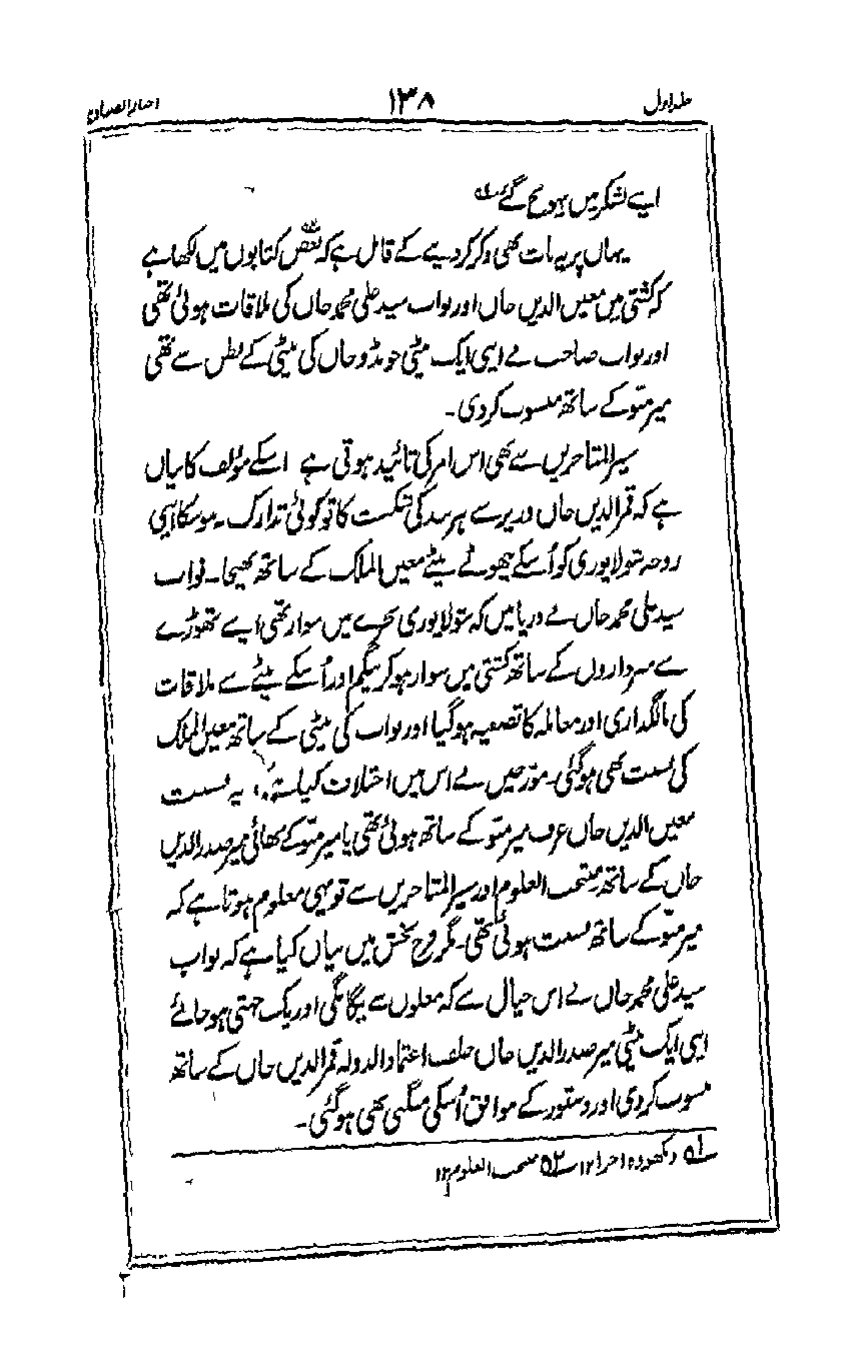 جلد اول ۱۳۸ اخبار الصنادید
اپنے لشکر میں پہونچ گئے ؎۱
یہاں پر یہ بات بھی ذکر کردینے کے قابل ہے کہ بعض ؎۲ کتابوں میں لکھا ہے
کہ کشتی میں معین الدین خاں اور نواب سید علی محمد خاں کی ملاقات ہوئی تھی
اور نواب صاحب نے اپنی ایک بیٹی جو منڈو خاں کی بیٹی کے بطن سے تھی
میر منّو کے ساتھ منسوب کردی۔
سیر المتاخرین سے بھی اس امر کی تائید ہوتی ہے اسکے مؤلف کا بیان
ہے کہ قمر الدین خاں وزیر سے ہرنند کی شکست کا تو کوئی تدارک نہ ہوسکا اپنی
زوجہ شولاپوری کو اُسکے چھوٹے بیٹے معین الملک کے ساتھ بھیجا۔ نواب
سید علی محمد خاں نے دریا میں کہ شولاپوری بجرے میں سوار تھی اپنے تھوڑے
سے سرداروں کے ساتھ کشتی میں سوار ہوکر بیگم اور اُسکے بیٹے سے ملاقات
کی مالگذاری اور معاملہ کا تصفیہ ہوگیا اور نواب کی بیٹی کے ساتھ معین الملک
کی نسبت بھی ہوگئی۔ مورخین نے اس میں اختلاف کیا ہے کہ یہ نسبت
معین الدین خاں عرف میر منّو کے ساتھ ہوئی تھی یا میر منّو کے بھائی میر صدر الدین
خاں کے ساتھ منتخب العلوم اور سیر المتاخرین سے تو یہی معلوم ہوتا ہے کہ
میر منّو کے ساتھ نسبت ہوئی تھی۔ مگر فرح بخش میں بیان کیا ہے کہ نواب
سید علی محمد خاں نے اس خیال سے کہ مغلوں سے یگانگی اور یک جہتی ہو جائے
اپنی ایک بیٹی میر صدر الدین خاں خلف اعتماد الدولہ قمر الدین خاں کے ساتھ
منسوب کردی اور دستور کے موافق اُسکی منگنی بھی ہوگئی۔
؎۱ دیکھو ۱۲ ؎۲ منتخب العلوم ۱۲